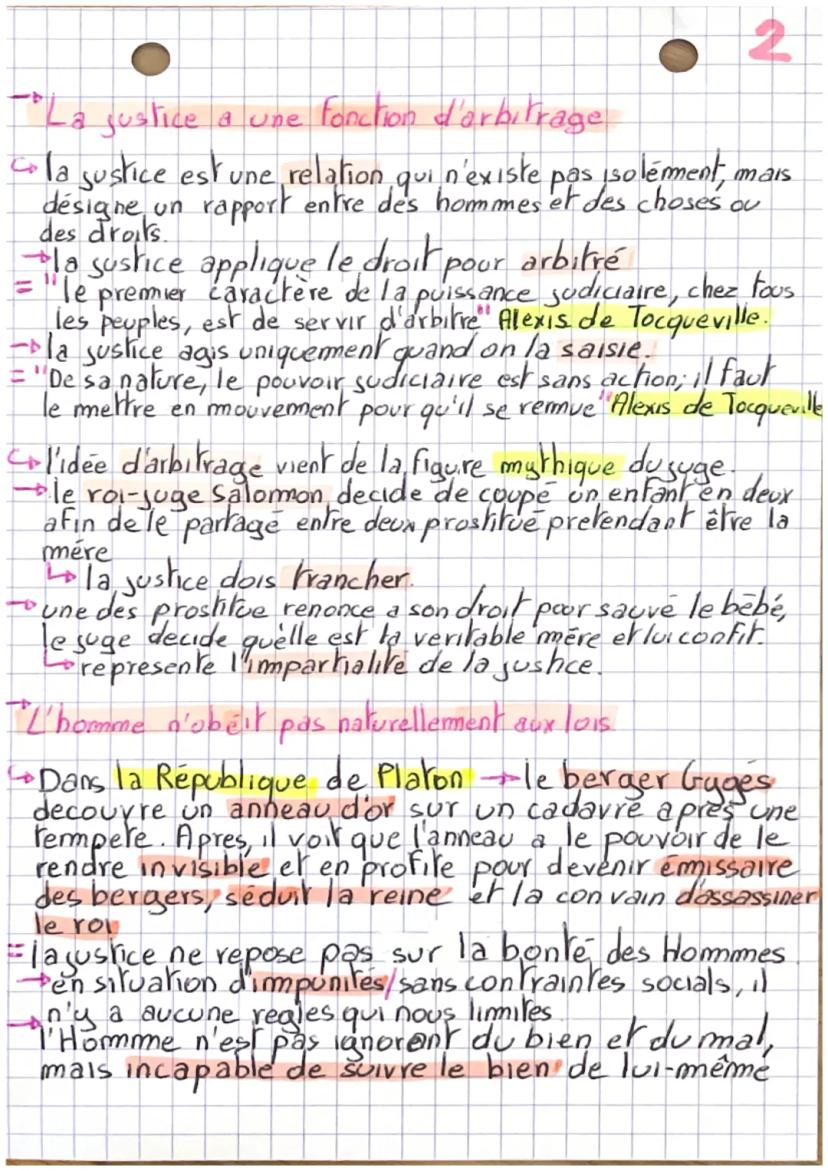 2
→ La justice a une fonction d'arbitrage
↳ la justice est une relation qui n'existe pas isolément, mais
désigne un rapport entre des hommes et des choses ou
des droits.
→ la justice applique le droit pour arbitré
= "le premier caractère de la puissance judiciaire, chez tous
les peuples, est de servir d'arbitre" Alexis de Tocqueville.
→ la justice agis uniquement quand on la saisie.
= "De sa nature, le pouvoir judiciaire est sans action; il faut
le mettre en mouvement pour qu'il se remue" Alexis de Tocqueville
↳ l'idée d'arbitrage vient de la figure mythique du juge.
→ le roi-juge Salomon decide de coupé un enfant en deux
afin de le partagé entre deux prostitué pretendant être la
mére
↳ la justice dois trancher.
→ une des prostitue renonce a son droit pour sauvé le bébé,
le juge decide quèlle est la veritable mère et lui confit.
↳ represente l'impartialité de la justice.
→ L'homme n'obéit pas naturellement aux lois
↳ Dans la République de Platon → le berger Gygès
decouvre un anneau d'or sur un cadavre après une
tempete. Apres, il voit que l'anneau a le pouvoir de le
rendre invisible et en profite pour devenir émissaire
des bergers, séduit la reine et la convain d'assassiner
le roi
= la justice ne repose pas sur la bonté des Hommmes
→ en situation d'impunités/sans contraintes socials, il
n'y a aucune regles qui nous limites
→ l'Hommme n'est pas ignorent du bien et du mal,
mais incapable de suivre le bien de lui-même